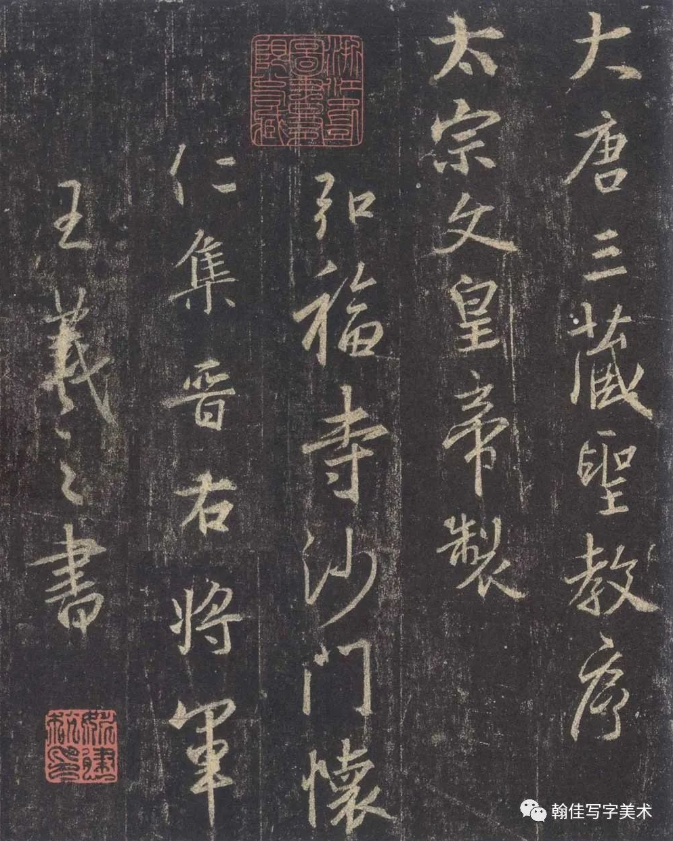 大唐三藏聖教序
太宗文皇帝製
弘福寺沙門懷
仁集晉右將軍
王羲之書
翰佳写字美术